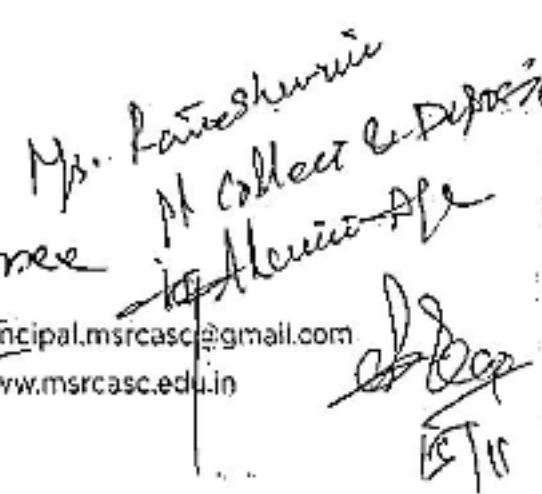 Ms. Rameshwari
Pl collect & Deposit
in Alumni A/c
ncipal.msrcasc@gmail.com
ww.msrcasc.edu.in
15/11